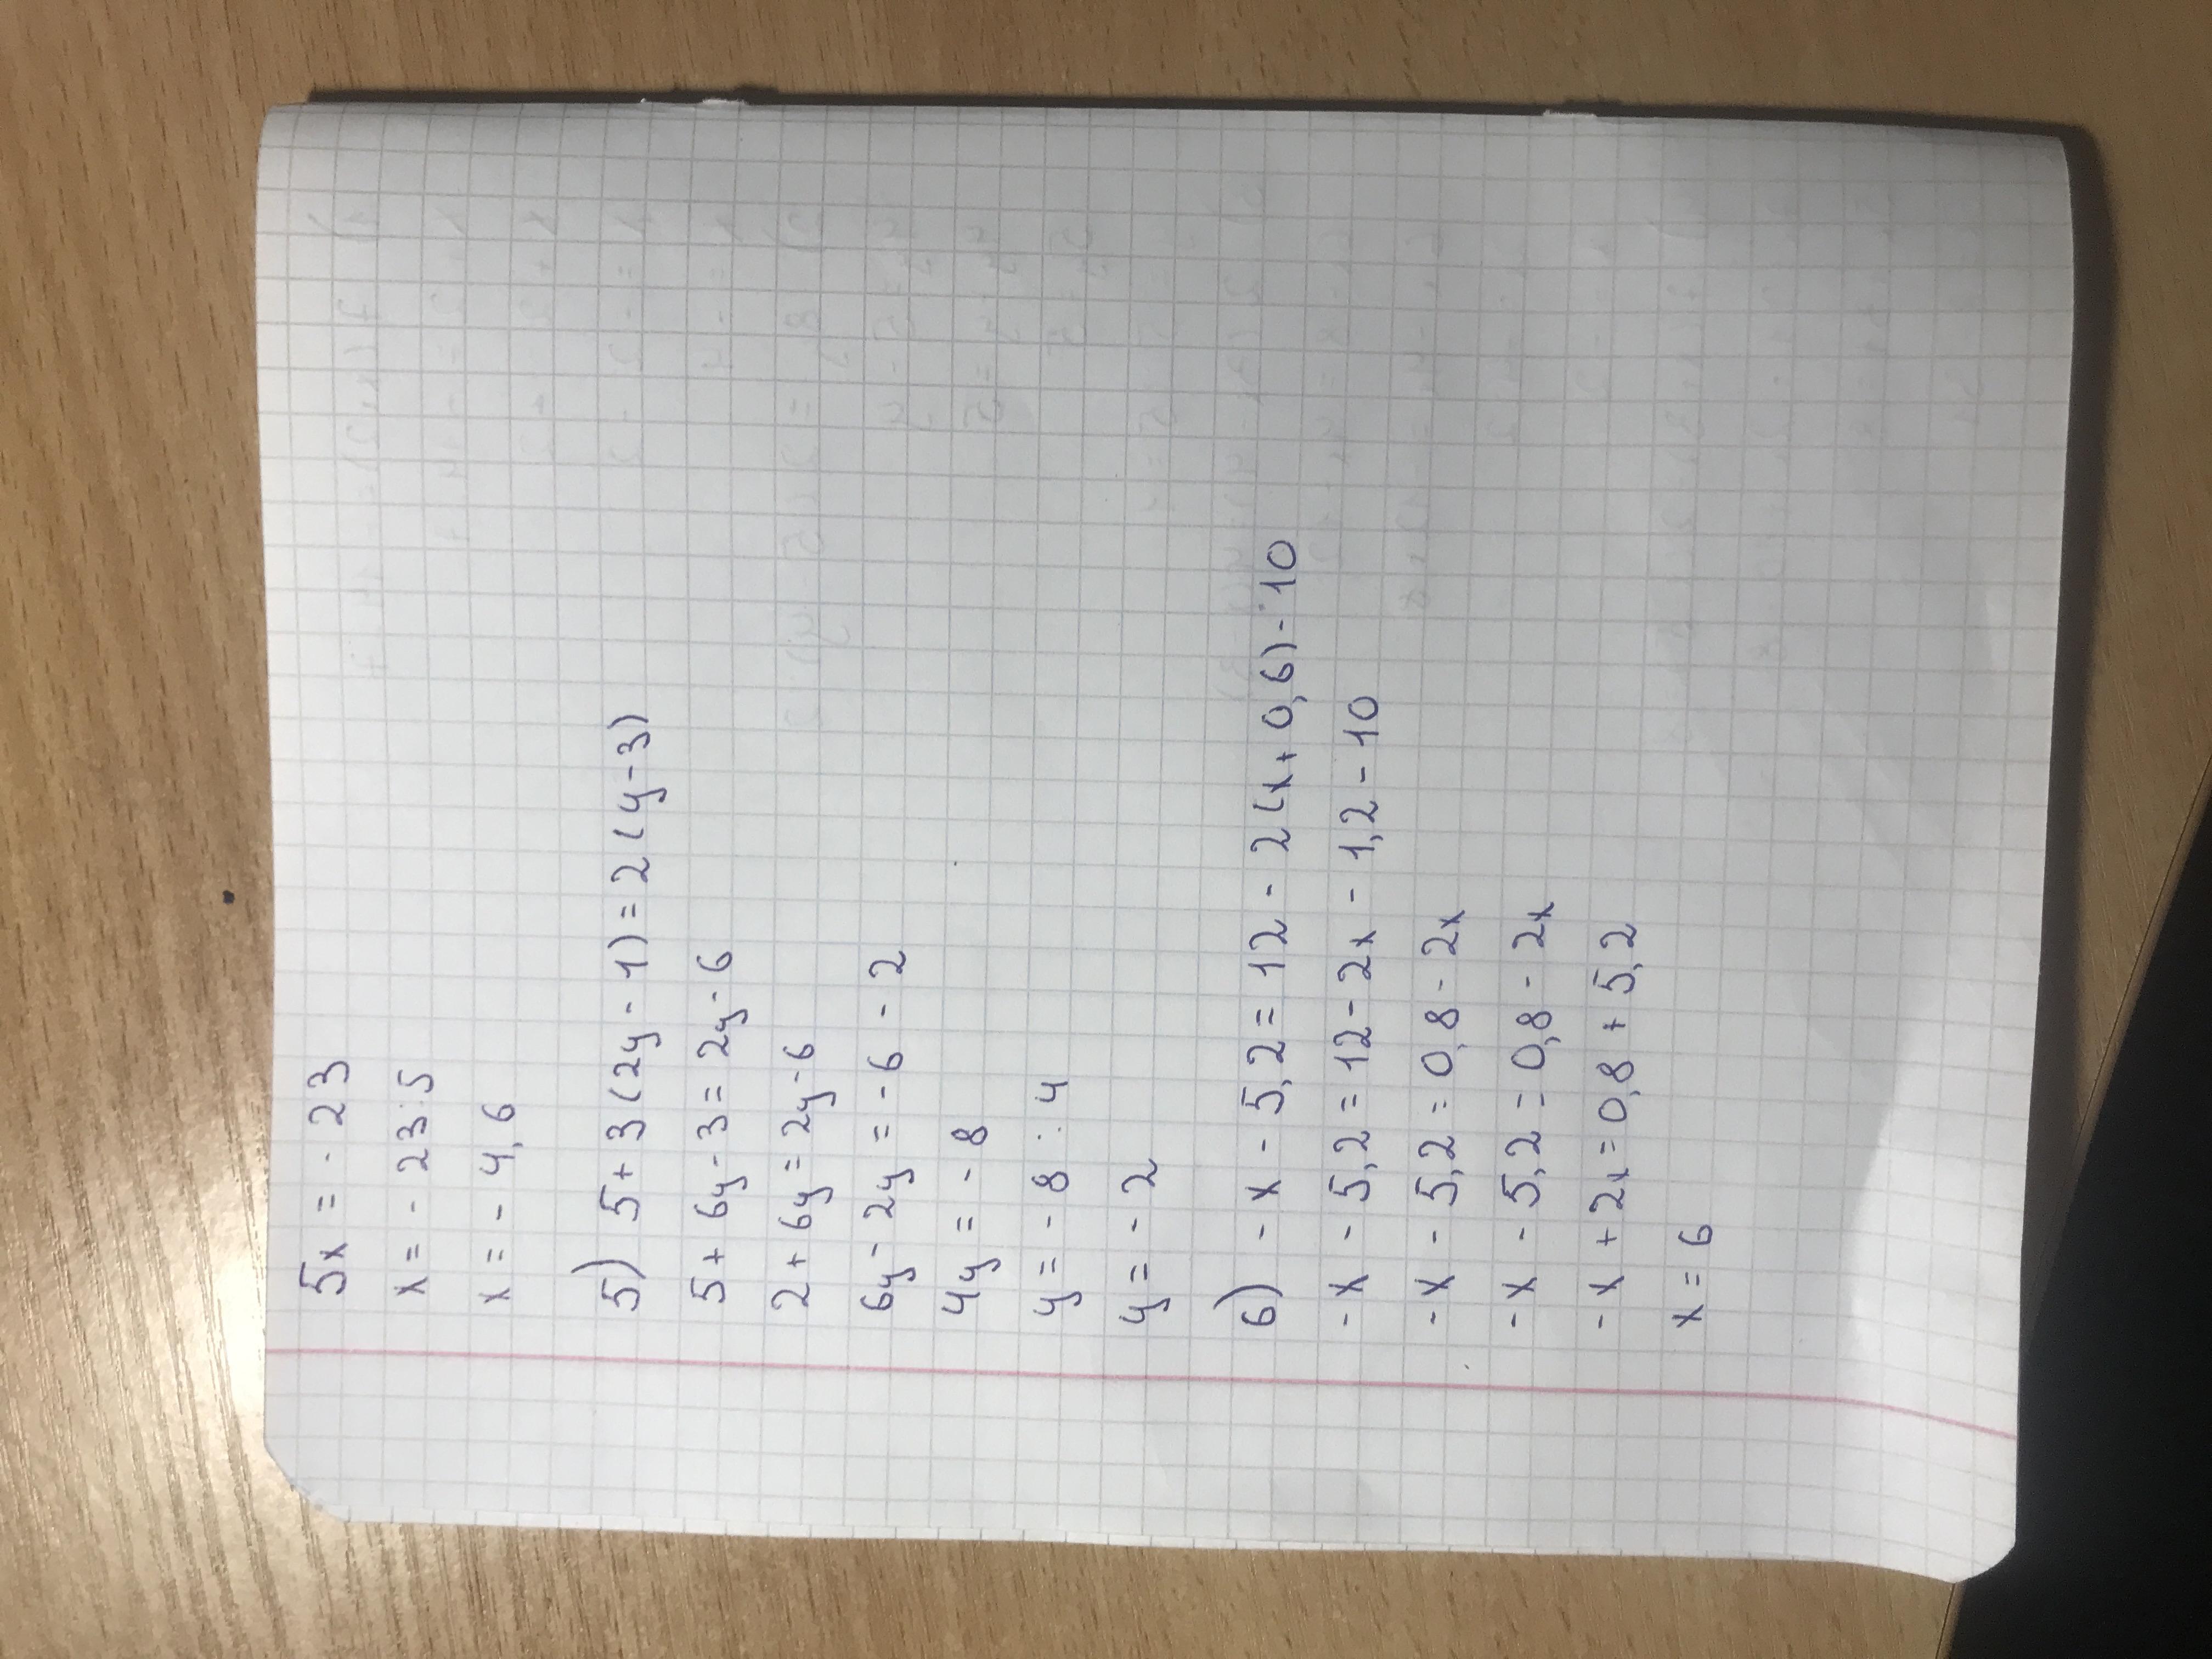 5x = - 23
x = - 23:5
x = - 4,6
5) 5 + 3 (2y - 1) = 2 (y - 3)
5 + 6y - 3 = 2y - 6
2 + 6y = 2y - 6
6y - 2y = - 6 - 2
4y = - 8
y = - 8 : 4
y = - 2
6) - x - 5,2 = 12 - 2 (x + 0,6) - 10
- x - 5,2 = 12 - 2x - 1,2 - 10
- x - 5,2 = 0,8 - 2x
- x - 5,2 = 0,8 - 2x
- x + 2x = 0,8 + 5,2
x = 6